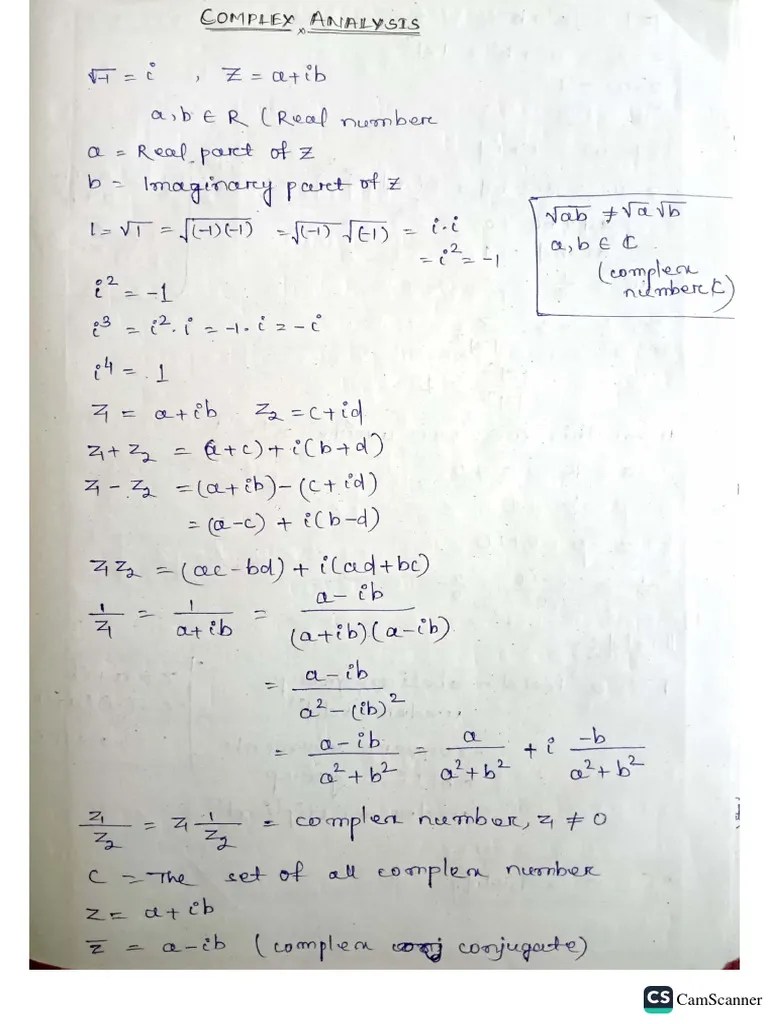 COMPLEX ANALYSIS
√-1 = i , Z = a+ib
a,b ∈ R (Real number
a = Real part of Z
b = Imaginary part of Z
1 = √1 = √(-1)(-1) = √(-1) √(-1) = i·i
= i² = -1
√ab ≠ √a √b
a,b ∈ ℂ
(complex
number)
i² = -1
i³ = i²·i = -1·i = -i
i⁴ = 1
Z₁ = a+ib Z₂ = c+id
Z₁+Z₂ = (a+c)+i(b+d)
Z₁ - Z₂ = (a+ib)-(c+id)
= (a-c) + i(b-d)
Z₁Z₂ = (ac-bd)+i(ad+bc)
1/Z₁ = 1/(a+ib) = (a-ib)/((a+ib)(a-ib))
= (a-ib)/(a²-(ib)²)
= (a-ib)/(a²+b²) = a/(a²+b²) + i (-b)/(a²+b²)
Z₁/Z₂ = Z₁ 1/Z₂ = complex number, Z₁ ≠ 0
C = The set of all complex number
Z = a+ib
Z̅ = a-ib (complex conjugate)
CS CamScanner